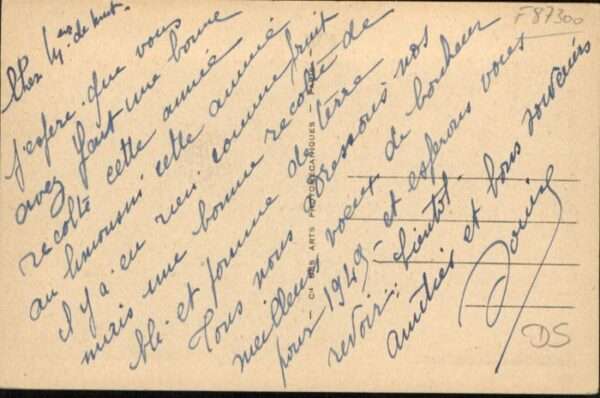 F87300
Cher Mr
j'espere que vous
avez fait une bonne
recolte cette année
au limousin cette année
il y a eu rien comme fruit
mais une bonne recolte de
blé et pomme de terre
Tous nous adressons nos
meilleurs voeux de bonheur
pour 1949 - et esperons vous
revoir bientot.
amitiés et bons souvenirs
— Cie DES ARTS PHOTOMECANIQUES — PARIS
DS